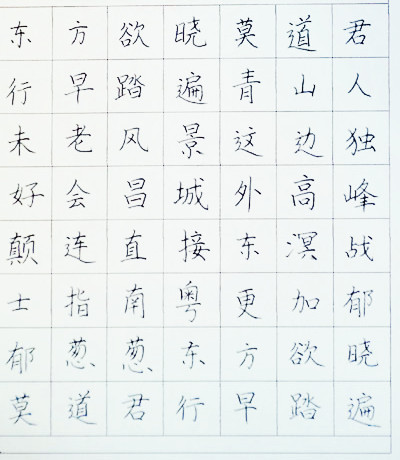 东方欲晓莫道君
行早踏遍青山人
未老风景这边独
好会昌城外高峰
颠连直接东溟战
士指南粤更加郁
郁葱葱东方欲晓
莫道君行早踏遍